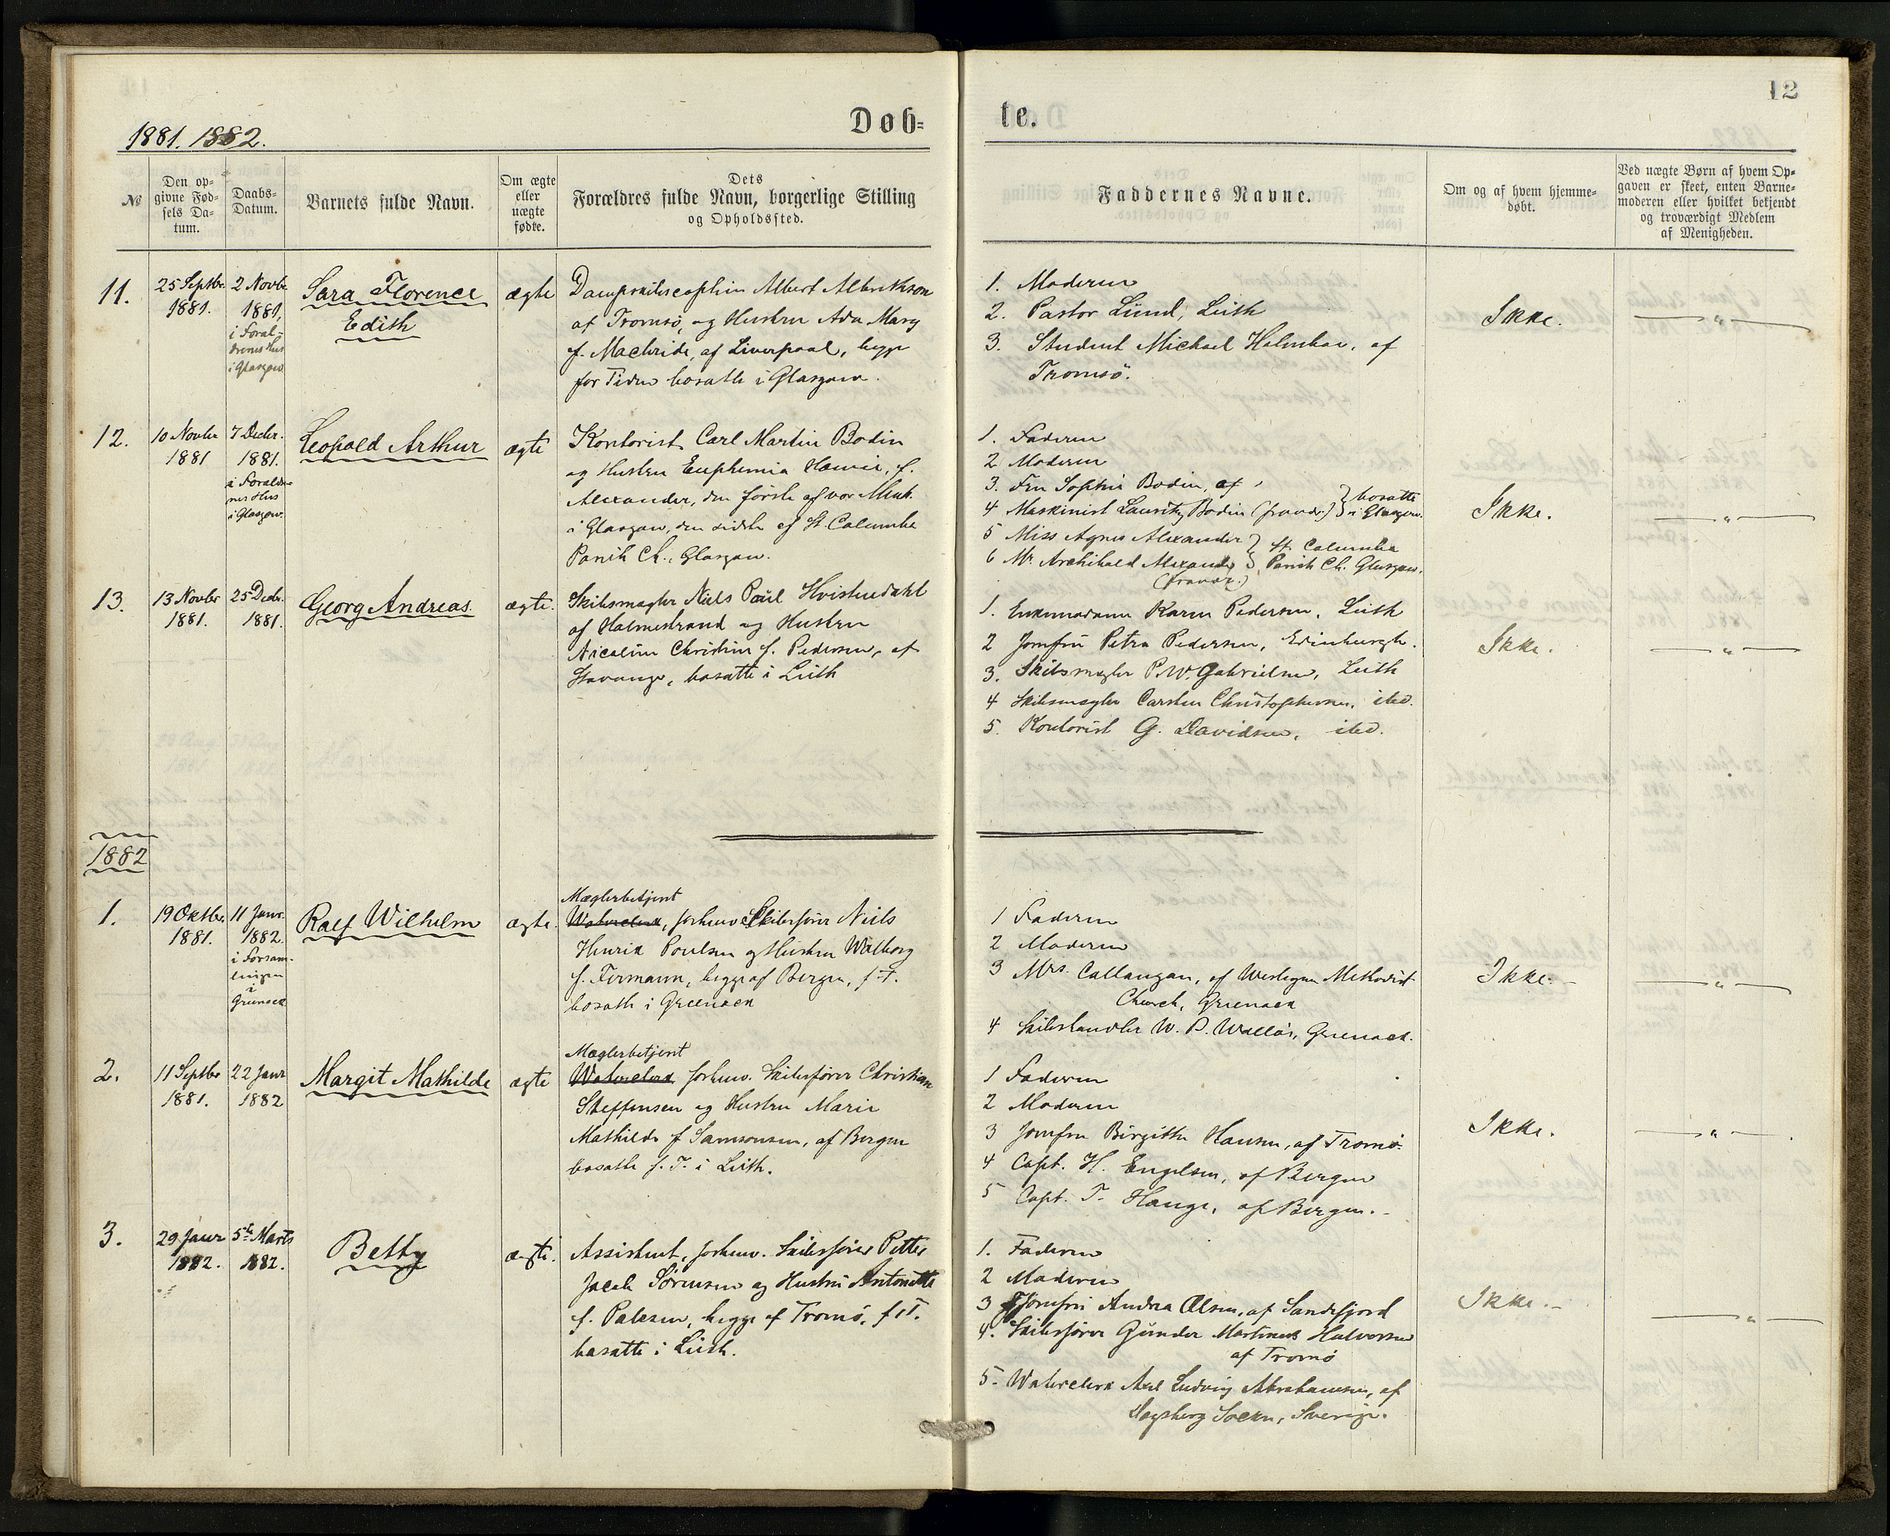 12
1881. 1882.
Døb-
te.
№
Den op-
givne Fød-
sels Da-
tum.
Daabs-
Datum.
Barnets fulde Navn.
Om ægte
eller
uægte
fødte.
Dets
Forældres fulde Navn, borgerlige Stilling
og Opholdssted.
Faddernes Navne.
Om og af hvem hjemme-
døbt.
Ved uægte Børn af hvem Op-
gaven er skeet, enten Barne-
moderen eller hvilket bekjendt
og troværdigt Medlem
af Menigheden.
11.
25 Septbr.
1881.
2 Novbr.
1881,
i Foræl-
drenes Hus
i Glasgow
Sara Florence
Edith
ægte
Albert Albrikson
af Tromsö, og Hustru Ada Mary
f. Macbride, af Liverpool, begge
for Tiden bosatte i Glasgow.
1. Moderen
2. Pastor Lund, Leith
3. Student Michael Holmboe, af
Tromsö.
Ikke.
"
12.
10 Novbr
1881
7 Decbr.
1881.
i Forældre-
nes Hus
i Glasgow.
Leopold Arthur
ægte
Kontorist Carl Martin Bodin
og Hustru Euphemia f.
Alexander, den første af vor Menk.
i Glasgow, den sidste af St Columba
Parish Ch., Glasgow.
1. Faderen
2 Moderen
3. Fru Sophie Bodin, af
4 Maskinist Lauritz Bodin (fravær.) } bosatte
i Glasgow.
5 Miss Agnes Alexander } St. Columba
6 Mr. Archibald Alexander } Parish Ch. Glasgow.
(fravær.)
Ikke.
"
13.
13 Novbr
1881.
25 Decbr.
1881.
Georg Andreas.
ægte.
Skibsmægler Niels Paul Hvistendahl
af Holmestrand og Hustru
Nicoline Christine f. Pedersen, af
Stavanger, bosatte i Leith
1. Enkemadame Karen Pedersen, Leith
2 Jomfru Petra Pedersen, Edinburgh.
3. Skibsmægler P. W. Gabrielsen, Leith
4 Skibsmægler Carsten Christophersen, ibid.
5. Kontorist G. Davidsen, ibid.
Ikke.
"
1882
1.
19 Oktbr.
1881.
11 Janr.
1882.
i Forsam-
lingen
i
Greenock
Ralf Wilhelm
ægte.
Mæglerbetjent
Waterclerk, forhenv. Skibsfører Niels
Henrik Poulsen og Hustru Walborg
f. Fermann, begge af Bergen, f. T.
bosatte i Greenock
1 Faderen
2 Moderen
3 Mrs. Callangan, af Wesleyan Methodist
Church, Greenock
4 Skibshandler W. P. Greenock.
Ikke.
"
2.
11 Septbr
1881.
22 Janr
1882
Margit Mathilde
ægte
Mæglerbetjent
Waterclerk forhenv. Skibsfører Christian
Steffensen og Hustru Marie
Mathilde f Samsonsen, af Bergen
bosatte f. T. i Leith.
1 Faderen
2 Moderen
3 Jomfru Birgitte Hansen, af Tromö
4 Capt. H. Engelsen, af Bergen
5 Capt. T. Hauge, af Bergen.
Ikke.
"
3.
29 Janr
1882.
5te Marts
1882.
Betty
ægte.
Assistent, forhenv. Skibsfører Petter
Jacob Sörensen og Hustru Antonette
f. Palesen, begge af Tromö, f. T.
bosatte i Leith.
1. Faderen
2 Moderen
3 Jomfru Andrea Olsen, af Sandefjord
4. Skibsfører Gunder Martinius Halvorsen
af Tromö
5. Waterclerk Axel Ludvig Abrahamsen, af
Socken, Sverige.
Ikke.
"